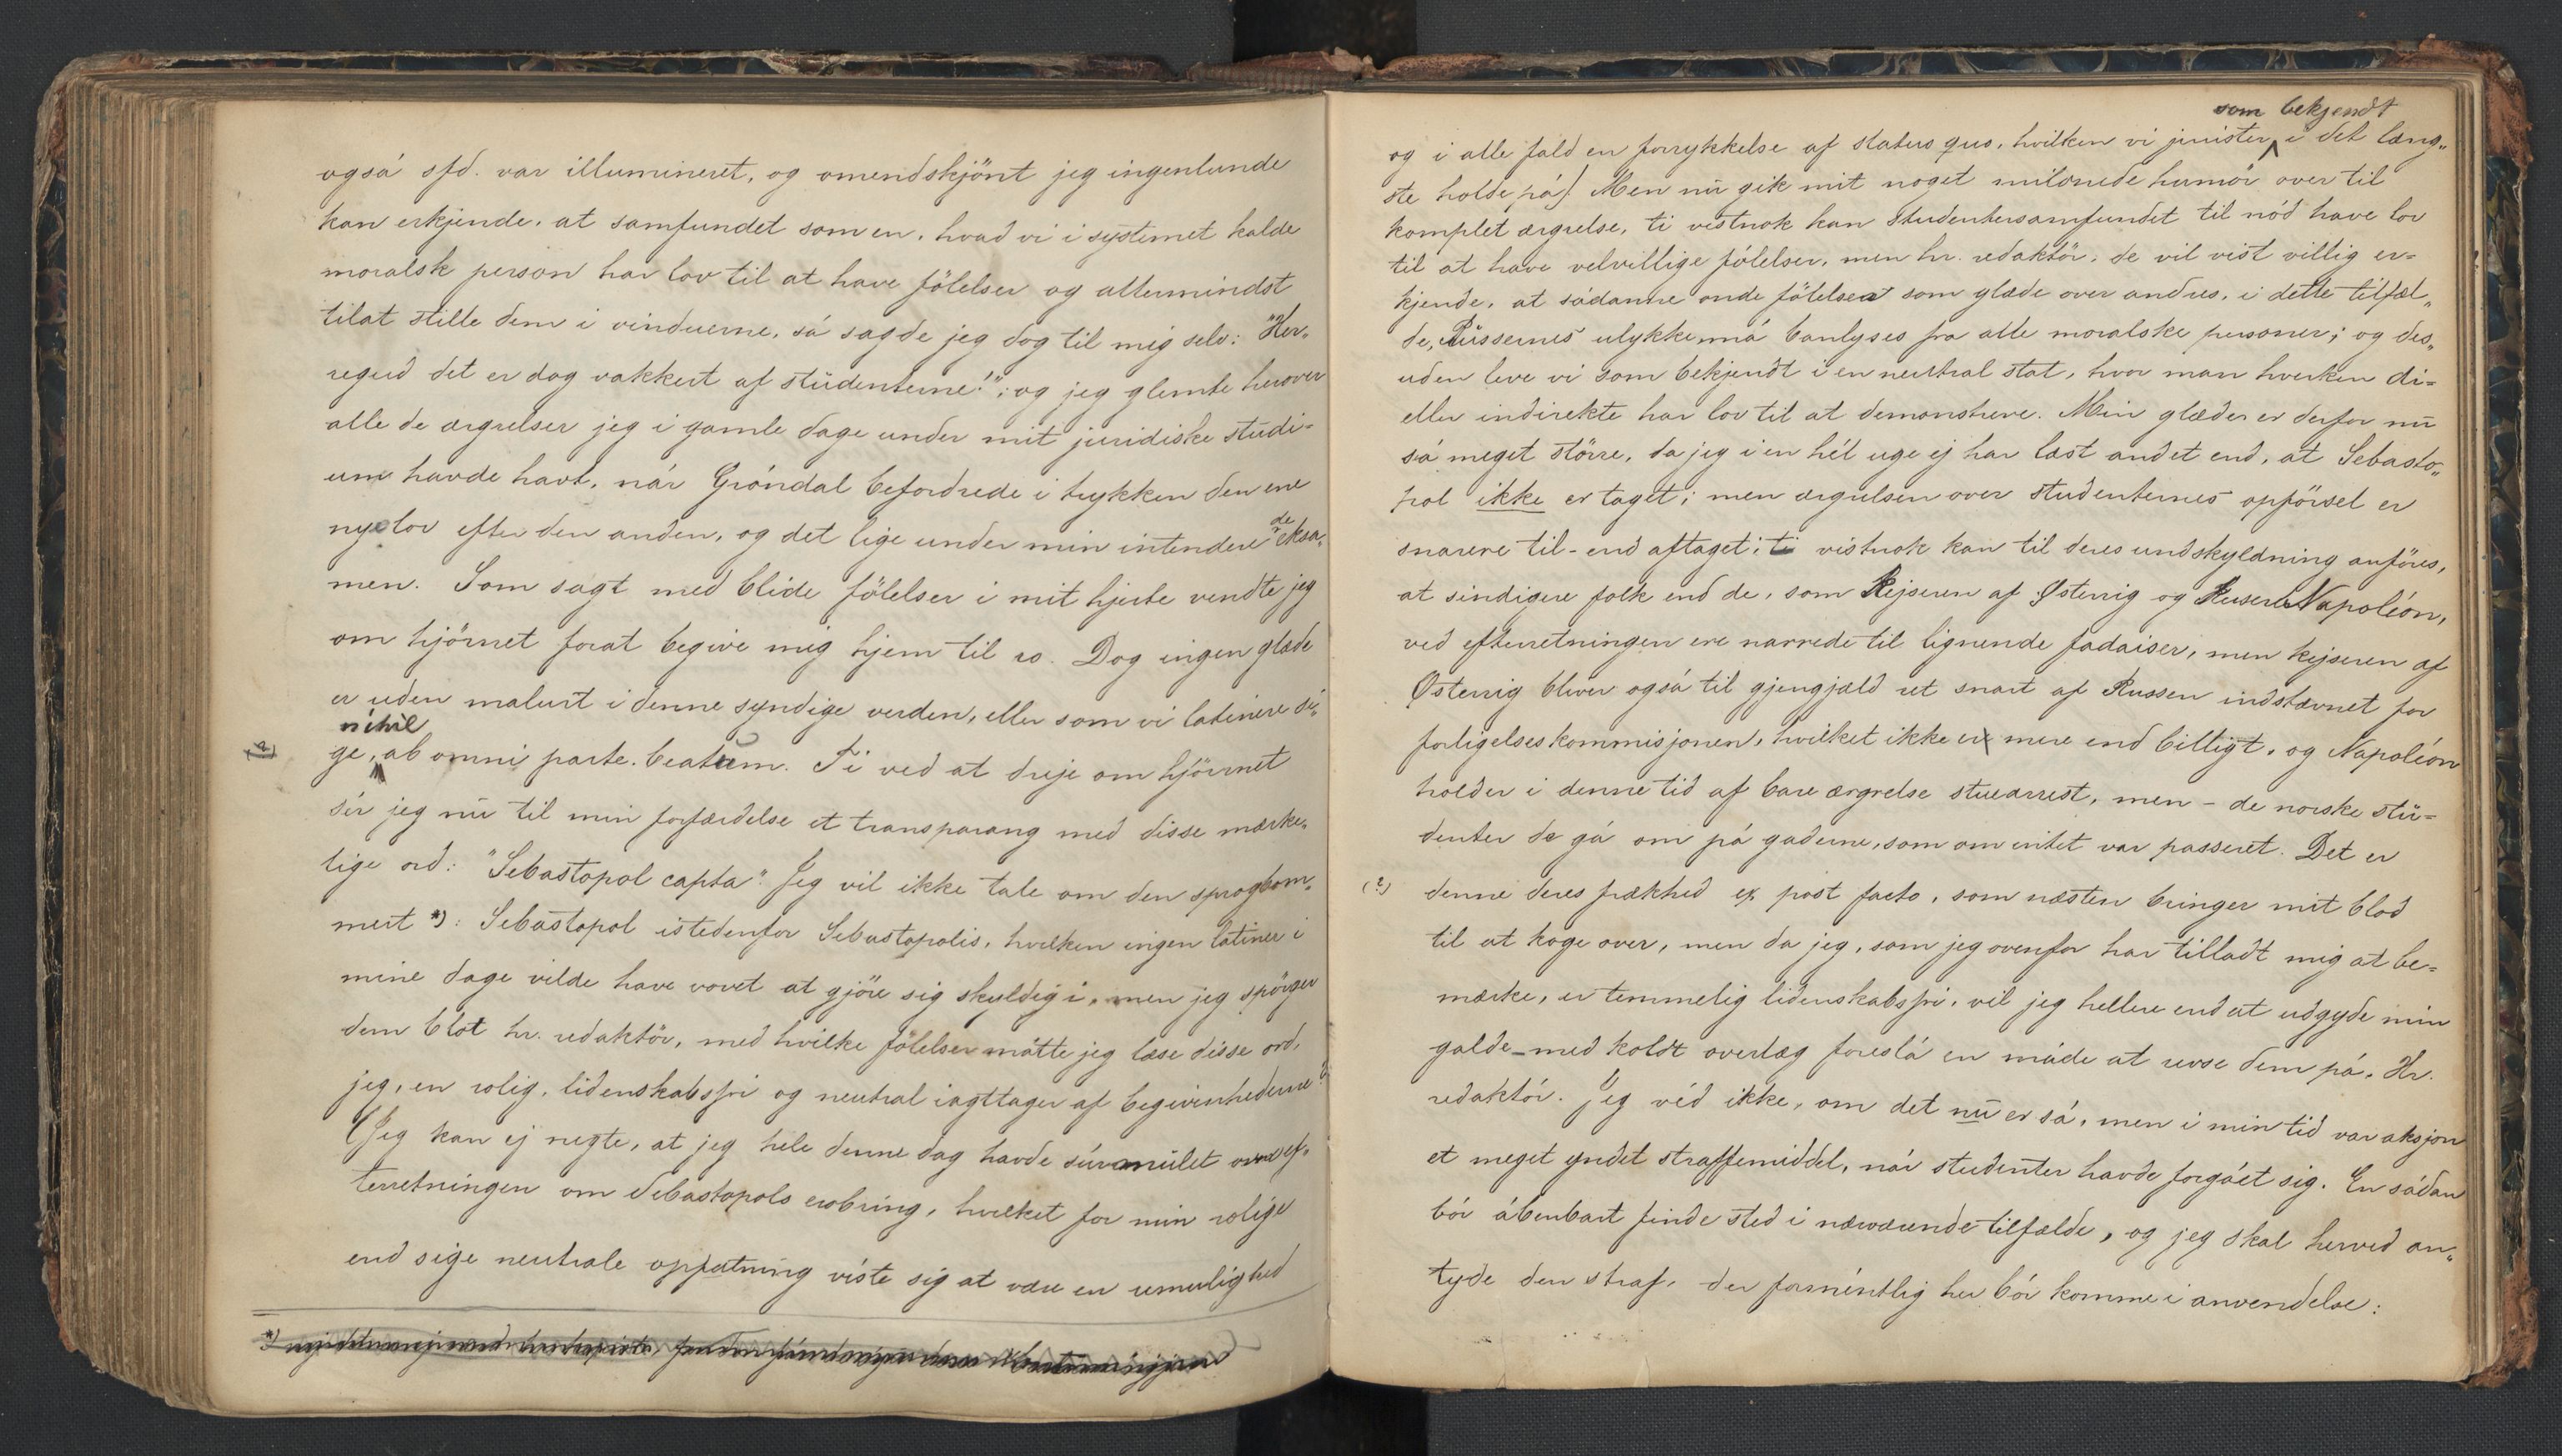 også sfd. var illumineret, og omendskjönt jeg ingenlunde
kan erkjende, at samfundet som en, hvad vi i systemet kalde
moralsk person har lov til at have fölelser og allermindst
tilat stille dem i vinduerne, så sagde jeg dog til mig selv: "Her„
regud det er dog vakkert af stüdenterne!"; og jeg glemte herover
alle de ærgrelser jeg i gamle dage under mit juridiske studi=
um havde havt, når Gröndal befordrede i trykken den ene
nye lov efter den anden, og det lige under min intenderede eksa„
men. Som sagt med blide fölelser i mit hjerte vendte jeg
om hjörnet forat begive mig hjem til ro. Dog ingen glæde
er uden malurt i denne syndige verden, eller som vi latinere si„
(?) ge, nihil ab omni parte beatum. Ti ved at dreje om hjörnet
sér jeg nu til min forfærdelse et transparang med disse mærke„
lige ord: "Sebastopol capta". Jeg vil ikke tale om den sprogbom„
mert *): Sebastopol istedenfor Sebastopolis, hvilken ingen latiner i
mine dage vilde have vovet at gjöre sig skyldig i, men jeg spörger
dem blot hr. redaktör, med hvilke fölelser måtte jeg læse disse ord,
jeg, en rolig, lidenskabsfri og neutral iagttager af begivenhederne?
(Jeg kan ej negte, at jeg hele denne dag havde súrmúlet over ef„
terretningen om Sebastopols erobring, hvilket for min rolige
end sige neutrale oppfatning viste sig at være en umulighed
*)
og i alle fald en forrykkelse af status quo, hvilken vi jurister som bekjendt i det læng„
ste holde på). Men nu gik mit noget mildnede humör over til
komplet ærgrelse, ti vistnok kan studentersamfundet til nöd have lov
til at have velvillige fölelser, men hr. redaktör, de vil vist villig er=
kjende, at sådanne onde fölelser som glæde over andres, i dette tilfæl„
de, Rüssernes ulykke må banlyses fra alle moralske personer; og des„
uden leve vi som bekjendt i en neutral stat, hvor man hverken di=
eller indirekte har lov til at demonstrere. Min glæde er derfor nu
så meget större, da jeg i en hél uge ej har læst andet end, at Sebasto„
pol ikke er taget; men ærgrelsen over studenternes opförsel er
snarere til- end aftaget; ti vistnok kan til deres undskyldning anföres,
at sindigere folk end de, som Kejseren af Østerrig og Kejseren Napoléon,
ved efterretningen ere narrede til lignende fadaiser, men kejseren af
Østerrig bliver også til gjengjæld ret snart af Russen indstævnet for
forligelseskommisjonen, hvilket ikke er mere end billigt, og Napoléon
holder i denne tid af bare ærgrelse stuearrest, men - de norske stü=
denter de gå om på gaderne, som om intet var passeret. Det er
(?) denne deres frækhed ex post facto, som næsten bringer mit blod
til at koge over, men da jeg, som jeg ovenfor har tilladt mig at be=
mærke, er temmelig lidenskabsfri, vil jeg hellere end at udgyde min
galde - med koldt overlæg foreslå en måde at revse dem på. Hr.
redaktör. Jeg véd ikke, om det nu er så, men i min tid var aksjon
et meget yndet straffemiddel, når studenter havde forgået sig. En sådan
bör åbenbart finde sted i nærværende tilfælde, og jeg skal herved an„
tyde den straf, der forméntlig her bör komme i anvendelse: